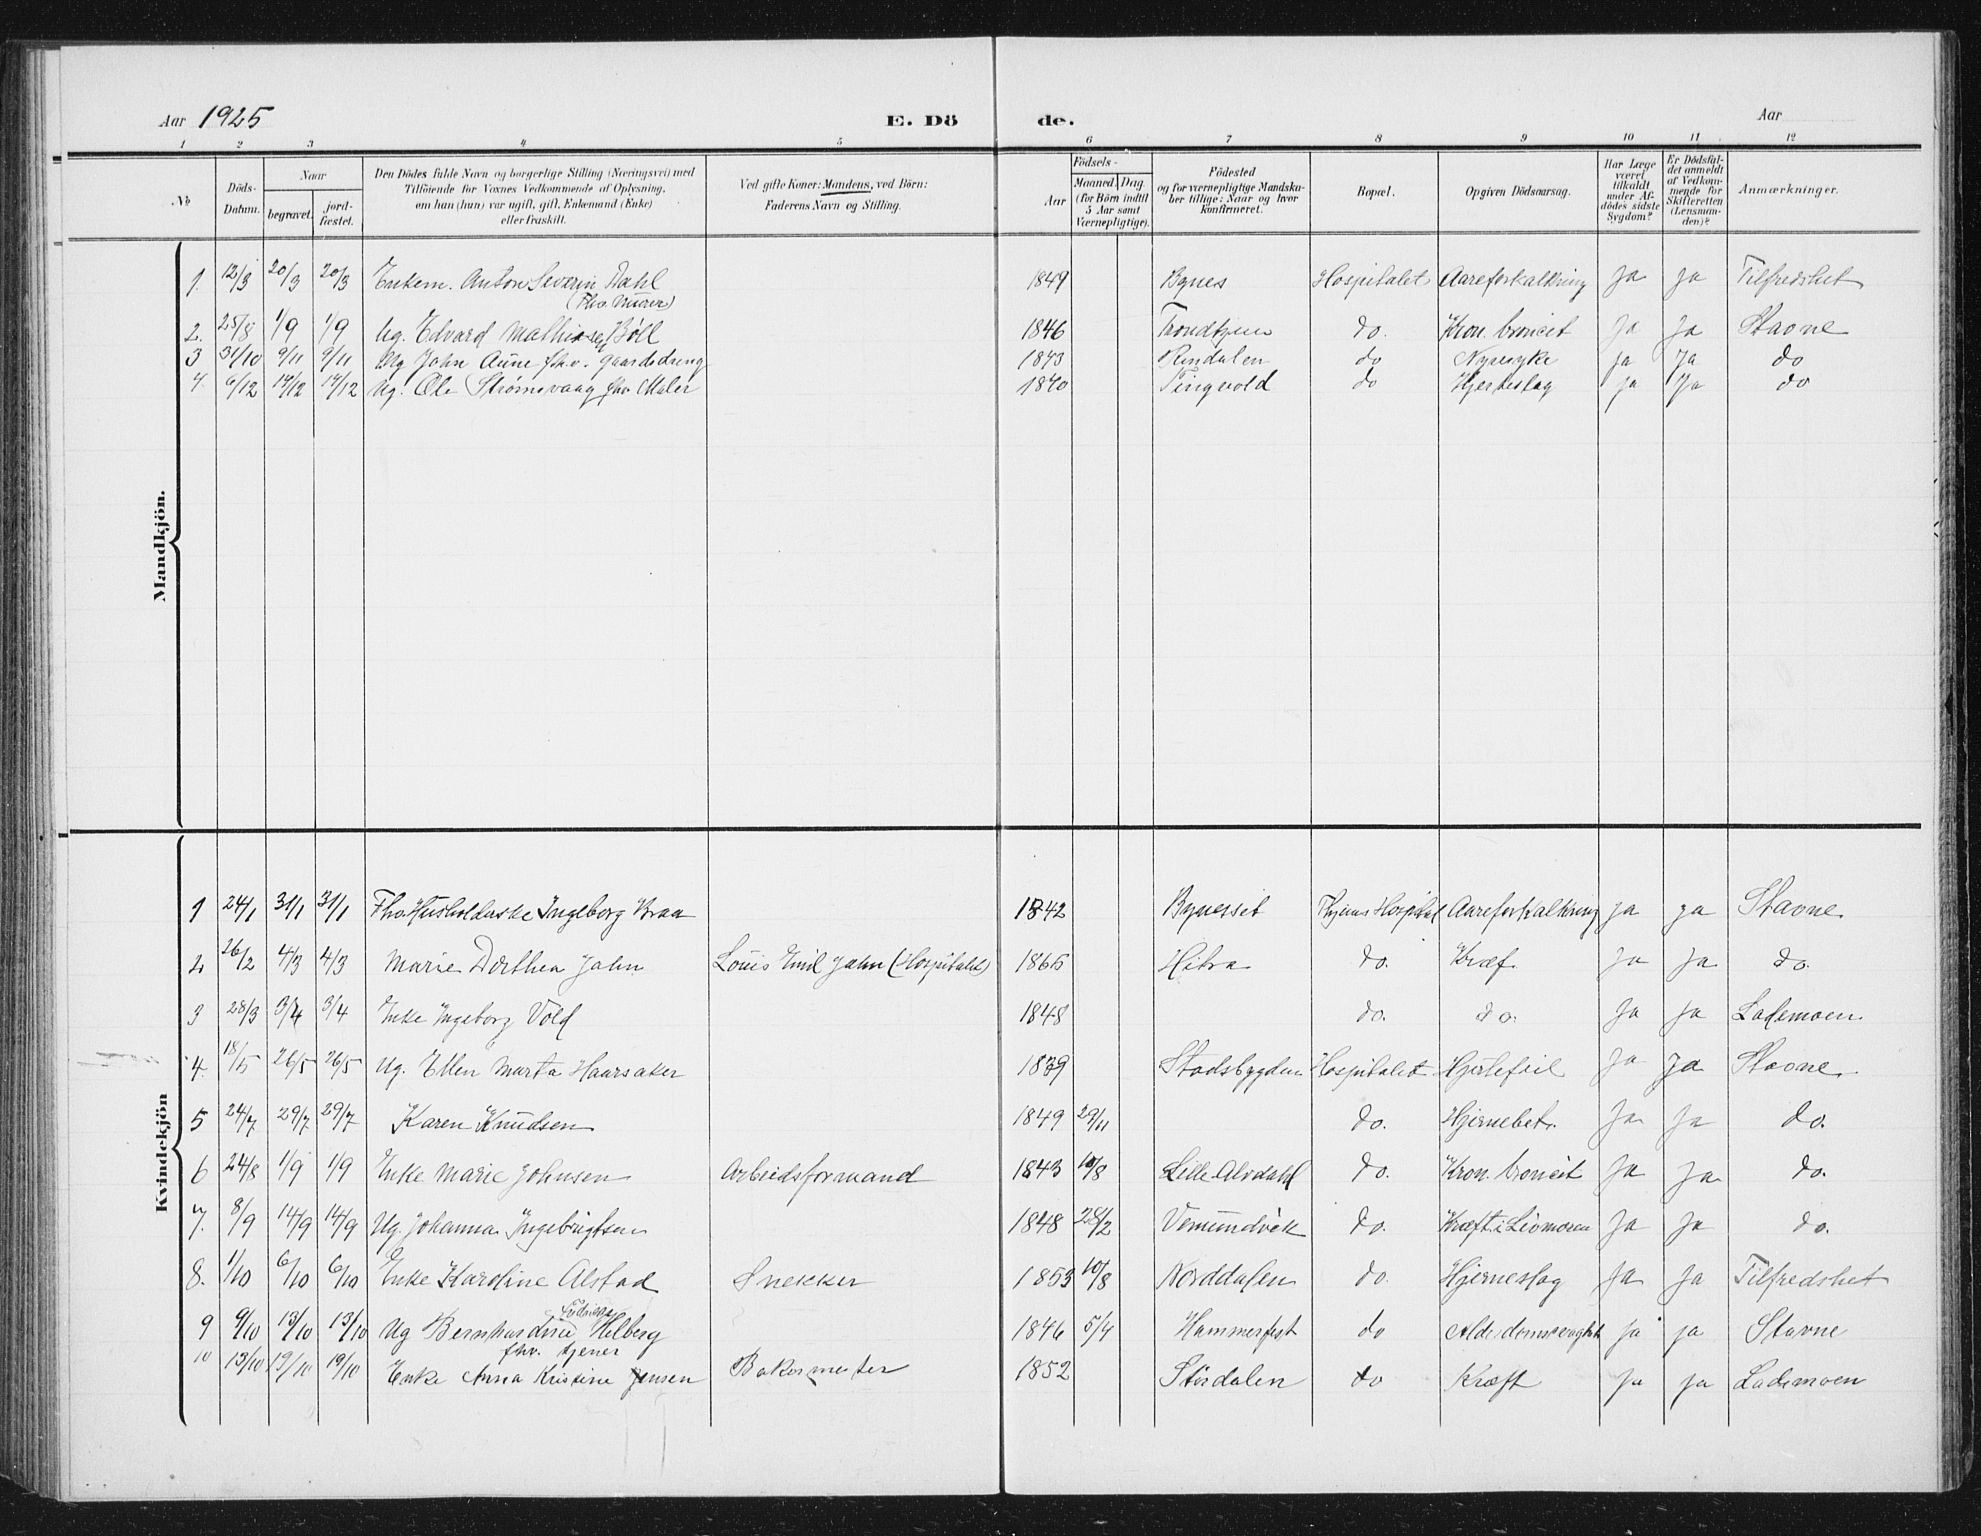 Aar 1925 E. Dö de. Aar
1 2 3 4 5 6 7 8 9 10 11 12
No Döds-Datum. Naar begravet. jord-fæstet. Den Dödes fulde Navn og borgerlige Stilling (Næringsvei) med Tilföiende for Voxnes Vedkommende af Oplysning, om han (hun) var ugift, gift, Enkemand (Enke) eller fraskilt. Ved gifte Koner: Mandens, ved Börn: Faderens Navn og Stilling. Aar Födsels- Maaned. Dag. (for Börn indtil 5 Aar samt Værnepligtige). Födested og for værnepligtige Mandska-ber tillige: Naar og hvor Konfirmeret. Bopæl. Opgiven Dödsaarsag. Har Læge været tilkaldt under Af-dödes sidste Sygdom? Er Dödsfal-det anmeldt af Vedkom-mende for Skifteretten (Lensman-den)? Anmærkninger.
Mandkjön.
1. 12/3 20/3 20/3 Enkem. Anton Severin Dahl 1849 Bynes Hospitalet Aareforkalkning Ja Ja Tilfredshet
(Fhv. Murer)
2. 25/8 1/9 1/9 Ug. Edvard Mathias Böll 1846 Trondhjem do. Kron. broncit Ja Ja Stavne
3 31/10 9/11 9/11 Ug John Aune fhv. gaardsdreng 1843 Rindalen do Nyresyke Ja Ja do
4 6/12 14/12 14/12 Ug. Ole Strømsvaag fhv Maler 1840 Tingvold do Hjerteslag Ja Ja do
Kvindekjön
1 24/1 31/1 31/1 Fhv Husholderske Ingeborg Braa 1842 Bynesset Thjems Hospital Aareforkalkning Ja Ja Stavne
2 26/2 4/3 4/3 Marie Dorthea Jahn Louis Emil Jahn (Hospitalet) 1865 Hitra do. Kræf. Ja Ja do.
3 28/3 3/4 3/4 Enke Ingeborg Vold 1848 do. do. Ja Ja Lademoen.
4. 18/5 26/5 26/5 Ug. Ellen Marta Haarsaker 1839 Stadsbygden Hospitalet Hjertefeil Ja Ja Stavne.
5 24/7 29/7 29/7 Karen Knudsen 1849 29/11 do. Hjernebet. Ja Ja do.
6 24/8 1/9 1/9 Enke Marie Johnsen Arbeidsformand 1843 10/8 Lille-Alvdahl do. Kron. broncit Ja Ja do.
7. 8/9 14/9 14/9 Ug. Johanna Ingebrigtsen 1848 28/2 Vemundvik do. Kræft i Livmoren Ja Ja do.
8. 1/10 6/10 6/10 Enke Karoline Alstad Snekker 1853 10/8 Norddalen do. Hjerneslag Ja Ja Tilfredshet
9 9/10 13/10 13/10 Ug Bernhardine Helberg 1846 5/4 Hammerfest do Alderdomssvaghet Ja Ja Stavne
fhv. tjener
10 13/10 19/10 19/10 Enke Anna Kristine Jensen Bakermester 1852 Stördalen do Kræft Ja Ja Lademoen